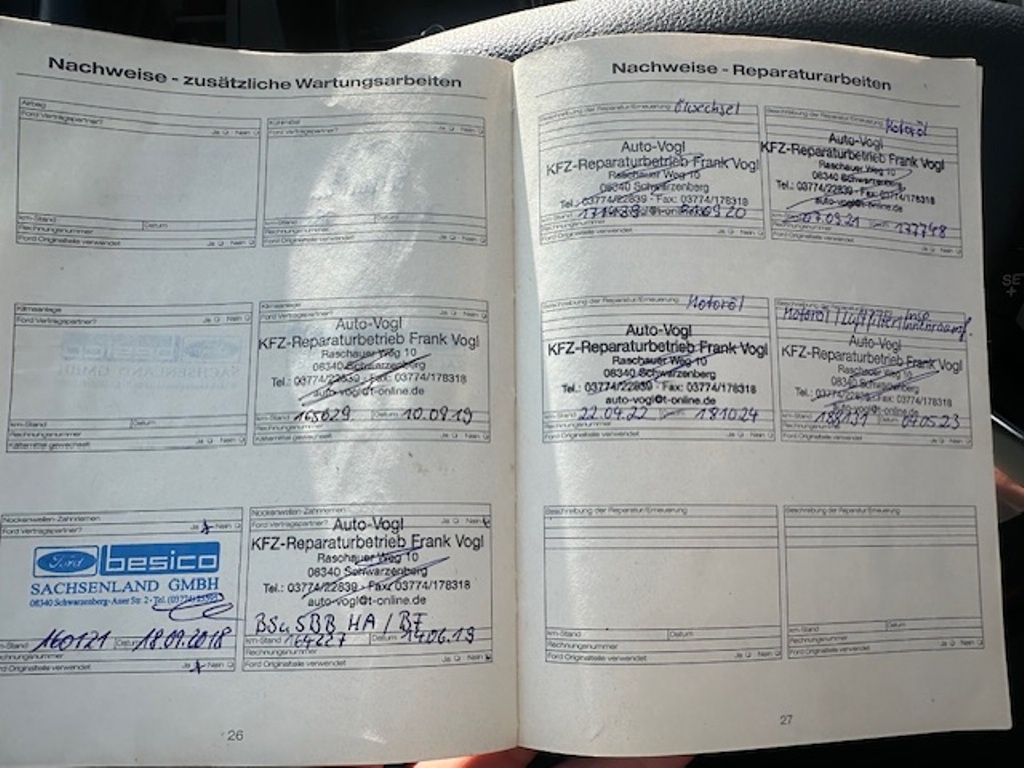 Nachweise - zusätzliche Wartungsarbeiten
Airbag
Ford Vertragspartner? Ja Nein
km-Stand Datum
Rechnungsnummer
Ford Originalteile verwendet Ja Nein
Kühlmittel
Ford Vertragspartner? Ja Nein
km-Stand Datum
Rechnungsnummer
Ford Originalteile verwendet Ja Nein
Klimaanlage
Ford Vertragspartner? Ja Nein
km-Stand Datum
Rechnungsnummer
Kältemittel gewechselt
Klimaanlage
Ford Vertragspartner? Ja Nein
Auto-Vogl
KFZ-Reparaturbetrieb Frank Vogl
Raschauer Weg 10
08340 Schwarzenberg
Tel.: 03774/22839 - Fax: 03774/178318
auto-vogl@t-online.de
km-Stand 165629 Datum 10.09.19
Rechnungsnummer
Kältemittel gewechselt Ja Nein
Nockenwellen-Zahnriemen
Ford Vertragspartner? Ja Nein
Ford besico
SACHSENLAND GMBH
08340 Schwarzenberg-Auer Str. 2-Tel.
km-Stand 160121 Datum 18.09.2018
Rechnungsnummer
Ford Originalteile verwendet Ja Nein
Nockenwellen-Zahnriemen
Ford Vertragspartner? Ja Nein
Auto-Vogl
KFZ-Reparaturbetrieb Frank Vogl
Raschauer Weg 10
08340 Schwarzenberg
Tel.: 03774/22839 - Fax: 03774/178318
auto-vogl@t-online.de
BSu SBB HA / BF
km-Stand 164227 Datum 14.06.19
Rechnungsnummer
Ford Originalteile verwendet Ja Nein
26
Nachweise - Reparaturarbeiten
Beschreibung der Reparatur/Erneuerung Ölwechsel
Auto-Vogl
KFZ-Reparaturbetrieb Frank Vogl
Raschauer Weg 10
08340 Schwarzenberg
Tel.: 03774/22839 - Fax: 03774/178318
km-Stand
Rechnungsnummer
Ford Originalteile verwendet Ja Nein
Beschreibung der Reparatur/Erneuerung Motoröl
Auto-Vogl
KFZ-Reparaturbetrieb Frank Vogl
Raschauer Weg 10
08340 Schwarzenberg
Tel.: 03774/22839 - Fax: 03774/178318
auto-vogl@t-online.de
07.09.21 177748
Rechnungsnummer
Ford Originalteile verwendet Ja Nein
Beschreibung der Reparatur/Erneuerung Motoröl
Auto-Vogl
KFZ-Reparaturbetrieb Frank Vogl
Raschauer Weg 10
08340 Schwarzenberg
Tel.: 03774/22839 - Fax: 03774/178318
auto-vogl@t-online.de
km-Stand 22.04.22 Datum 181024
Rechnungsnummer
Ford Originalteile verwendet Ja Nein
Beschreibung der Reparatur/Erneuerung
Motoröl / Luftfilter/Innenraumf.
Auto-Vogl
KFZ-Reparaturbetrieb Frank Vogl
Raschauer Weg 10
08340 Schwarzenberg
Tel.: 03774/22839 - Fax: 03774/178318
auto-vogl@t-online.de
km-Stand Datum 04.05.23
Rechnungsnummer
Ford Originalteile verwendet Ja Nein
Beschreibung der Reparatur/Erneuerung
km-Stand Datum
Rechnungsnummer
Ford Originalteile verwendet Ja Nein
Beschreibung der Reparatur/Erneuerung
km-Stand Datum
Rechnungsnummer
Ford Originalteile verwendet Ja Nein
27
SET
+